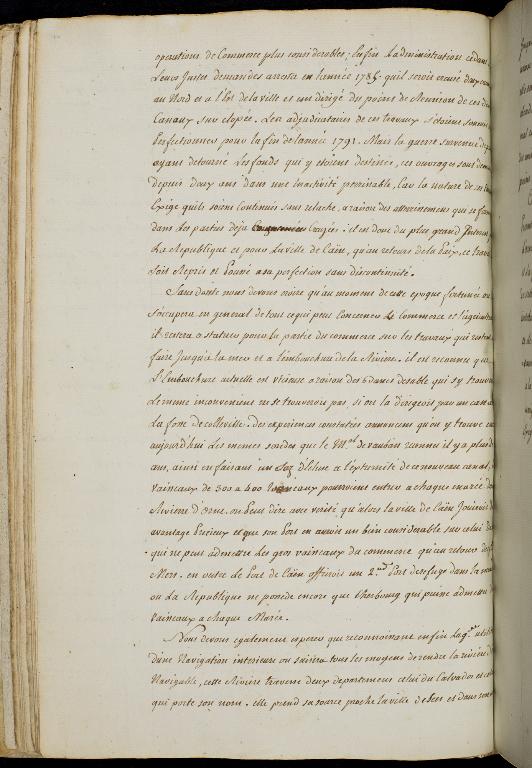 operations de Commerce plus considerables; Enfin Ladministration cedant
Leurs justes demandes arresta en Lannée 1785 quil seroit creusé deux can
au Nord et a l'Est de la ville et un dirigé des points de Reunion de ces deux
Canaux sur clopée. Les adjudicataires de ces travaux s'étoient soumis
Perfectionner pour la fin de lannée 1791. Mais la guerre survenue de
ayant detourné Les fonds qui y étoient destinés, ces ouvrages sont demeurés
depuis deux ans dans une inactivité preiudiciable, Car la nature de ces trav
Exige quils soient continués sans relache, a raison des atterissemens qui se form
dans Les parties deja creusées. il est donc du plus grand Interest
La Republique et pour La ville de Caën, qu'au retour de la Paix, ce travail
soit Repris et Poussé a sa perfection sans discontinuité.
Sans doute nous devons croire qu'au moment de cette epoque fortunée on
s'occupera en general de tout ce qui peut Concerner Le Commerce et l'agricultur
il restera a statuer pour la partie du commerce sur les travaux qui restent
faire Jusqu'a la mer et a l'embouchure de la Riviere. il est reconnu que
L'Embouchure actuelle est vicieuse a raison des dunes de sable qui s'y trouv
Le meme inconvenient ne se trouveroit pas, si on la dirigeoit par un canal
La fosse de colleville. des experiences constatées annoncent qu'on y trouve en
aujourd'hui Les memes sondes que le M.al de vauban reconnu il y a plus de
ans, ainsi en faisant un Sas d'Ecluse a l'extremité de ce nouveau canal,
vaisseaux de 300 a 400 Tonneaux pourroient entrer a chaque marée dans
Riviere d'orne. on Peut dire avec verité qu'alors la ville de Caën Jouiroit d
avantage Precieux et que son Port en auroit un bien considerable sur celui
qui ne peut admettre Les gros vaisseaux du commerce qu'au retour des
Mers. en outre Le Port de Caën offriroit un 2.nd Port de refuge dans la man
ou La Republique ne possede encore que Cherbourg qui puisse admettre
vaisseaux a chaque Marée.
Nous devons egalement esperer que reconnoissant enfin La g.de utilité
d'une Navigation interieure on suivra tous les moyens de rendre la riviere d
Navigable, cette Riviere traverse deux departemens celui du Calvados et celui
qui porte son nom. elle prend sa source proche la ville de Sées et dans son